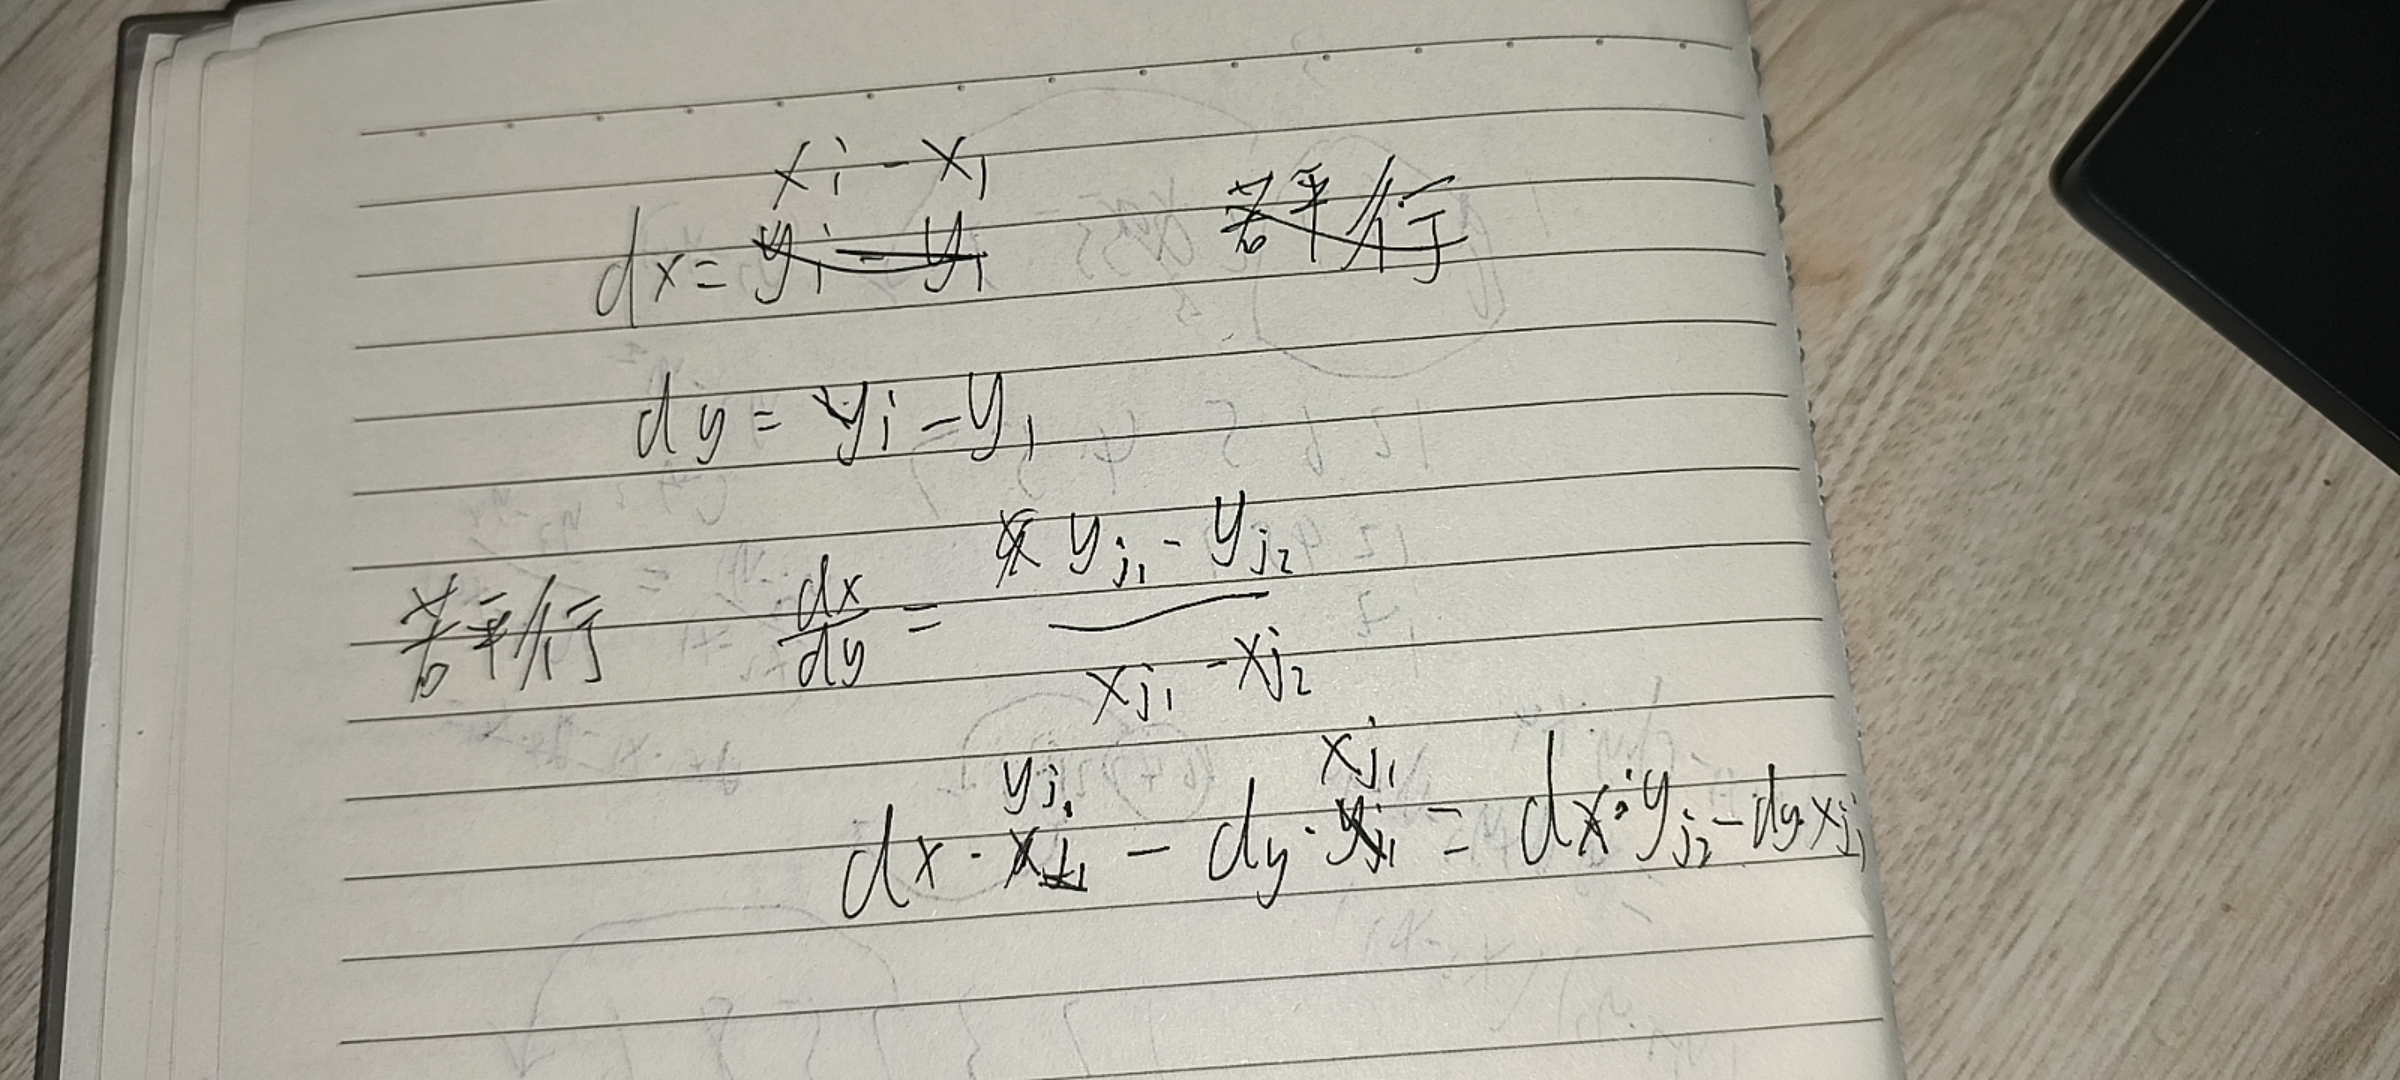 dx = xi - x1
dy = yi - y1
若平行 dx/dy = yj1 - yj2 / xj1 - xj2
dx · yj1 - dy · xj1 = dx · yj2 - dy xj1